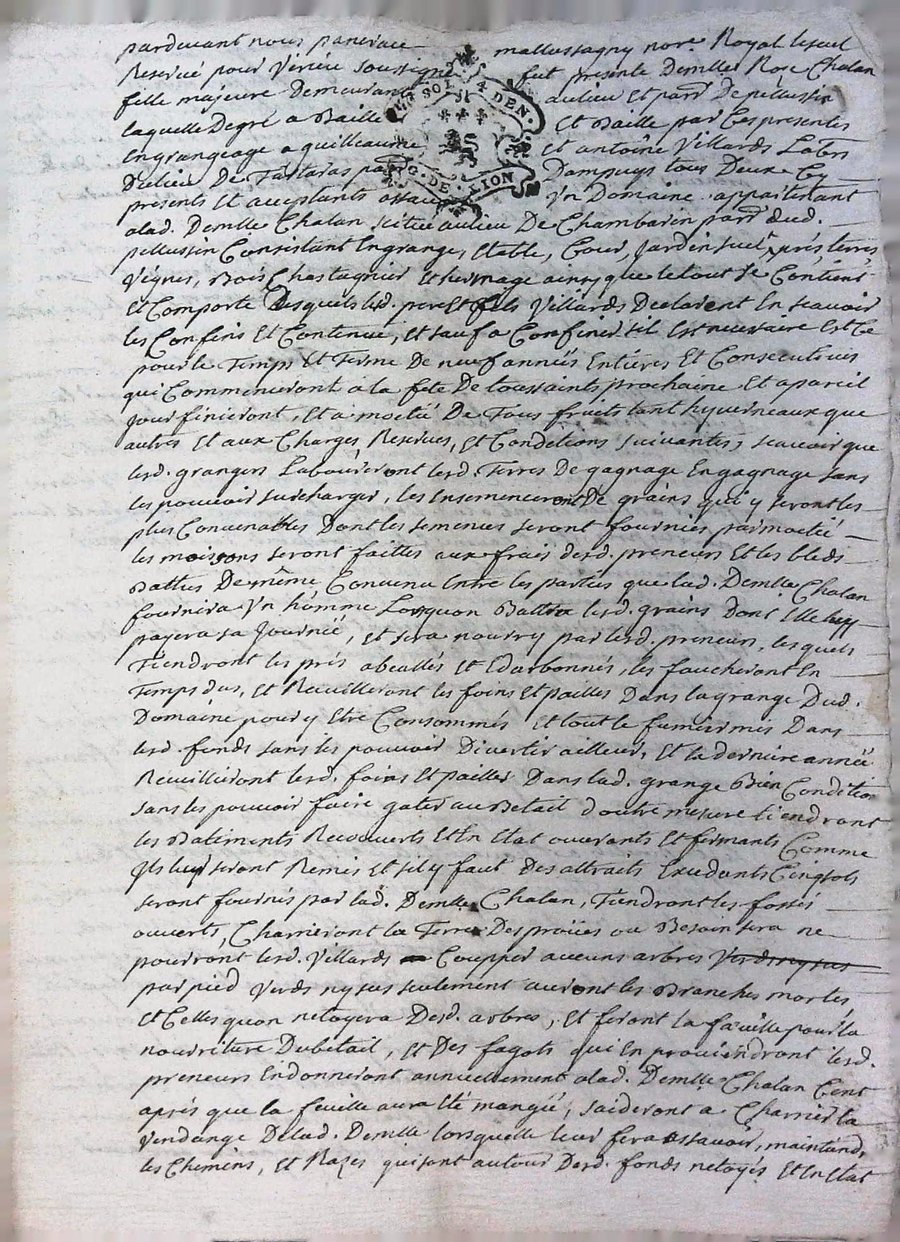 pardevant nous pancrace mallassagny nore. Royal lesuel
Reservé pour Verieu soussigné fut presente Demlle. Rose Chalan
fille majeure Demeurant au lieu et parr. De pellussin
SOL 4 DEN.
G. DE LION
laquelle Degré a Baillé et Baille par Ces presentes
En grangeage a guilleaume et antoine Villards
Du lieu De Tartaras parr. Dampuys tous Deux Cy
presents et acceptants assavoir Un Domaine appartenant
alad. Demlle. Chalan scitué au lieu De Chambaren parr. Dud.
pellussin Consistant En grange, Etable, Cour, Jardin, prés, terres,
Vignes, Bois Chastagnier et hermage ainsy que le tout se Contient
et Comporte Desquels lesd. pere et fils Villards Declarent En scavoir
les Confins Et Contenue, et sauf a Confiner sil Est necessaire Est Ce
pour le Temps et Terme De neuf années Entieres Et Consecutives
qui Commenceront a la fete De toussaints prochaine Et a pareil
jour finieront, Et a moetié De Tous fruits tant hyverneaux que
autres Et aux Charges Reserves, et Conditions suivantes, scavoir que
lesd. grangers Laboureront lesd. Terres De gagnage En gagnage sans
les pouvoir surcharger, les Ensemenceront De grains qui y seront les
plus Convenables Dont les semences seront fournies par moetié
les moissons seront faittes aux frais desd. preneurs Et les bleds
Battus De même Convenu Entre les parties que lad. Demlle. Chalan
fournira Un homme Lorsquon Battra lesd. grains Dont Elle luy
payera sa Journée, et sera nourry par lesd. preneurs, lesquels
Tiendront les prés abeallés et Edarbonnés, les faucheront En
Temps dus, et Recuilleront les foins Et pailles Dans la grange Dud.
Domaine pour y Etre Consommés et tout le fumier mis Dans
lesd. fonds sans les pouvoir Divertir ailleurs, Et la derniere année
Recuilliront lesd. foins Et pailles Dans lad. grange Bien Condition
sans les pouvoir faire gater au Betail D'outre mesure tiendront
les Batiments Recouverts Et En Etat ouvrants Et fermants Comme
Ils luy seront Remis Et sil y faut Des attraits Exedants Cinq sols
seront fournis par lad. Demlle. Chalan, Tiendront les fossés
ouverts, Charrieront la Terre Desproües ou Besoin sera ne
pourront lesd. Villards Coupper aucuns arbres Verds ny sas
par pied Verds ny sus seulement auront les Branches mortes
Et Celles quon netoyera Desd. arbres, Et feront la feuille pour la
nourriture Du betail, et Des fagots qui En proviendront lesd.
preneurs En donneront annuellement alad. Demlle. Chalan Cent
aprés que la feuille aura Eté mangée, saideront a Charrier la
Vendange De lad. Demlle. lorsquelle leur fera assavoir, maintiend.
les Chemins, Et Razes qui sont autour Desd. fonds netoyés Et En Etat